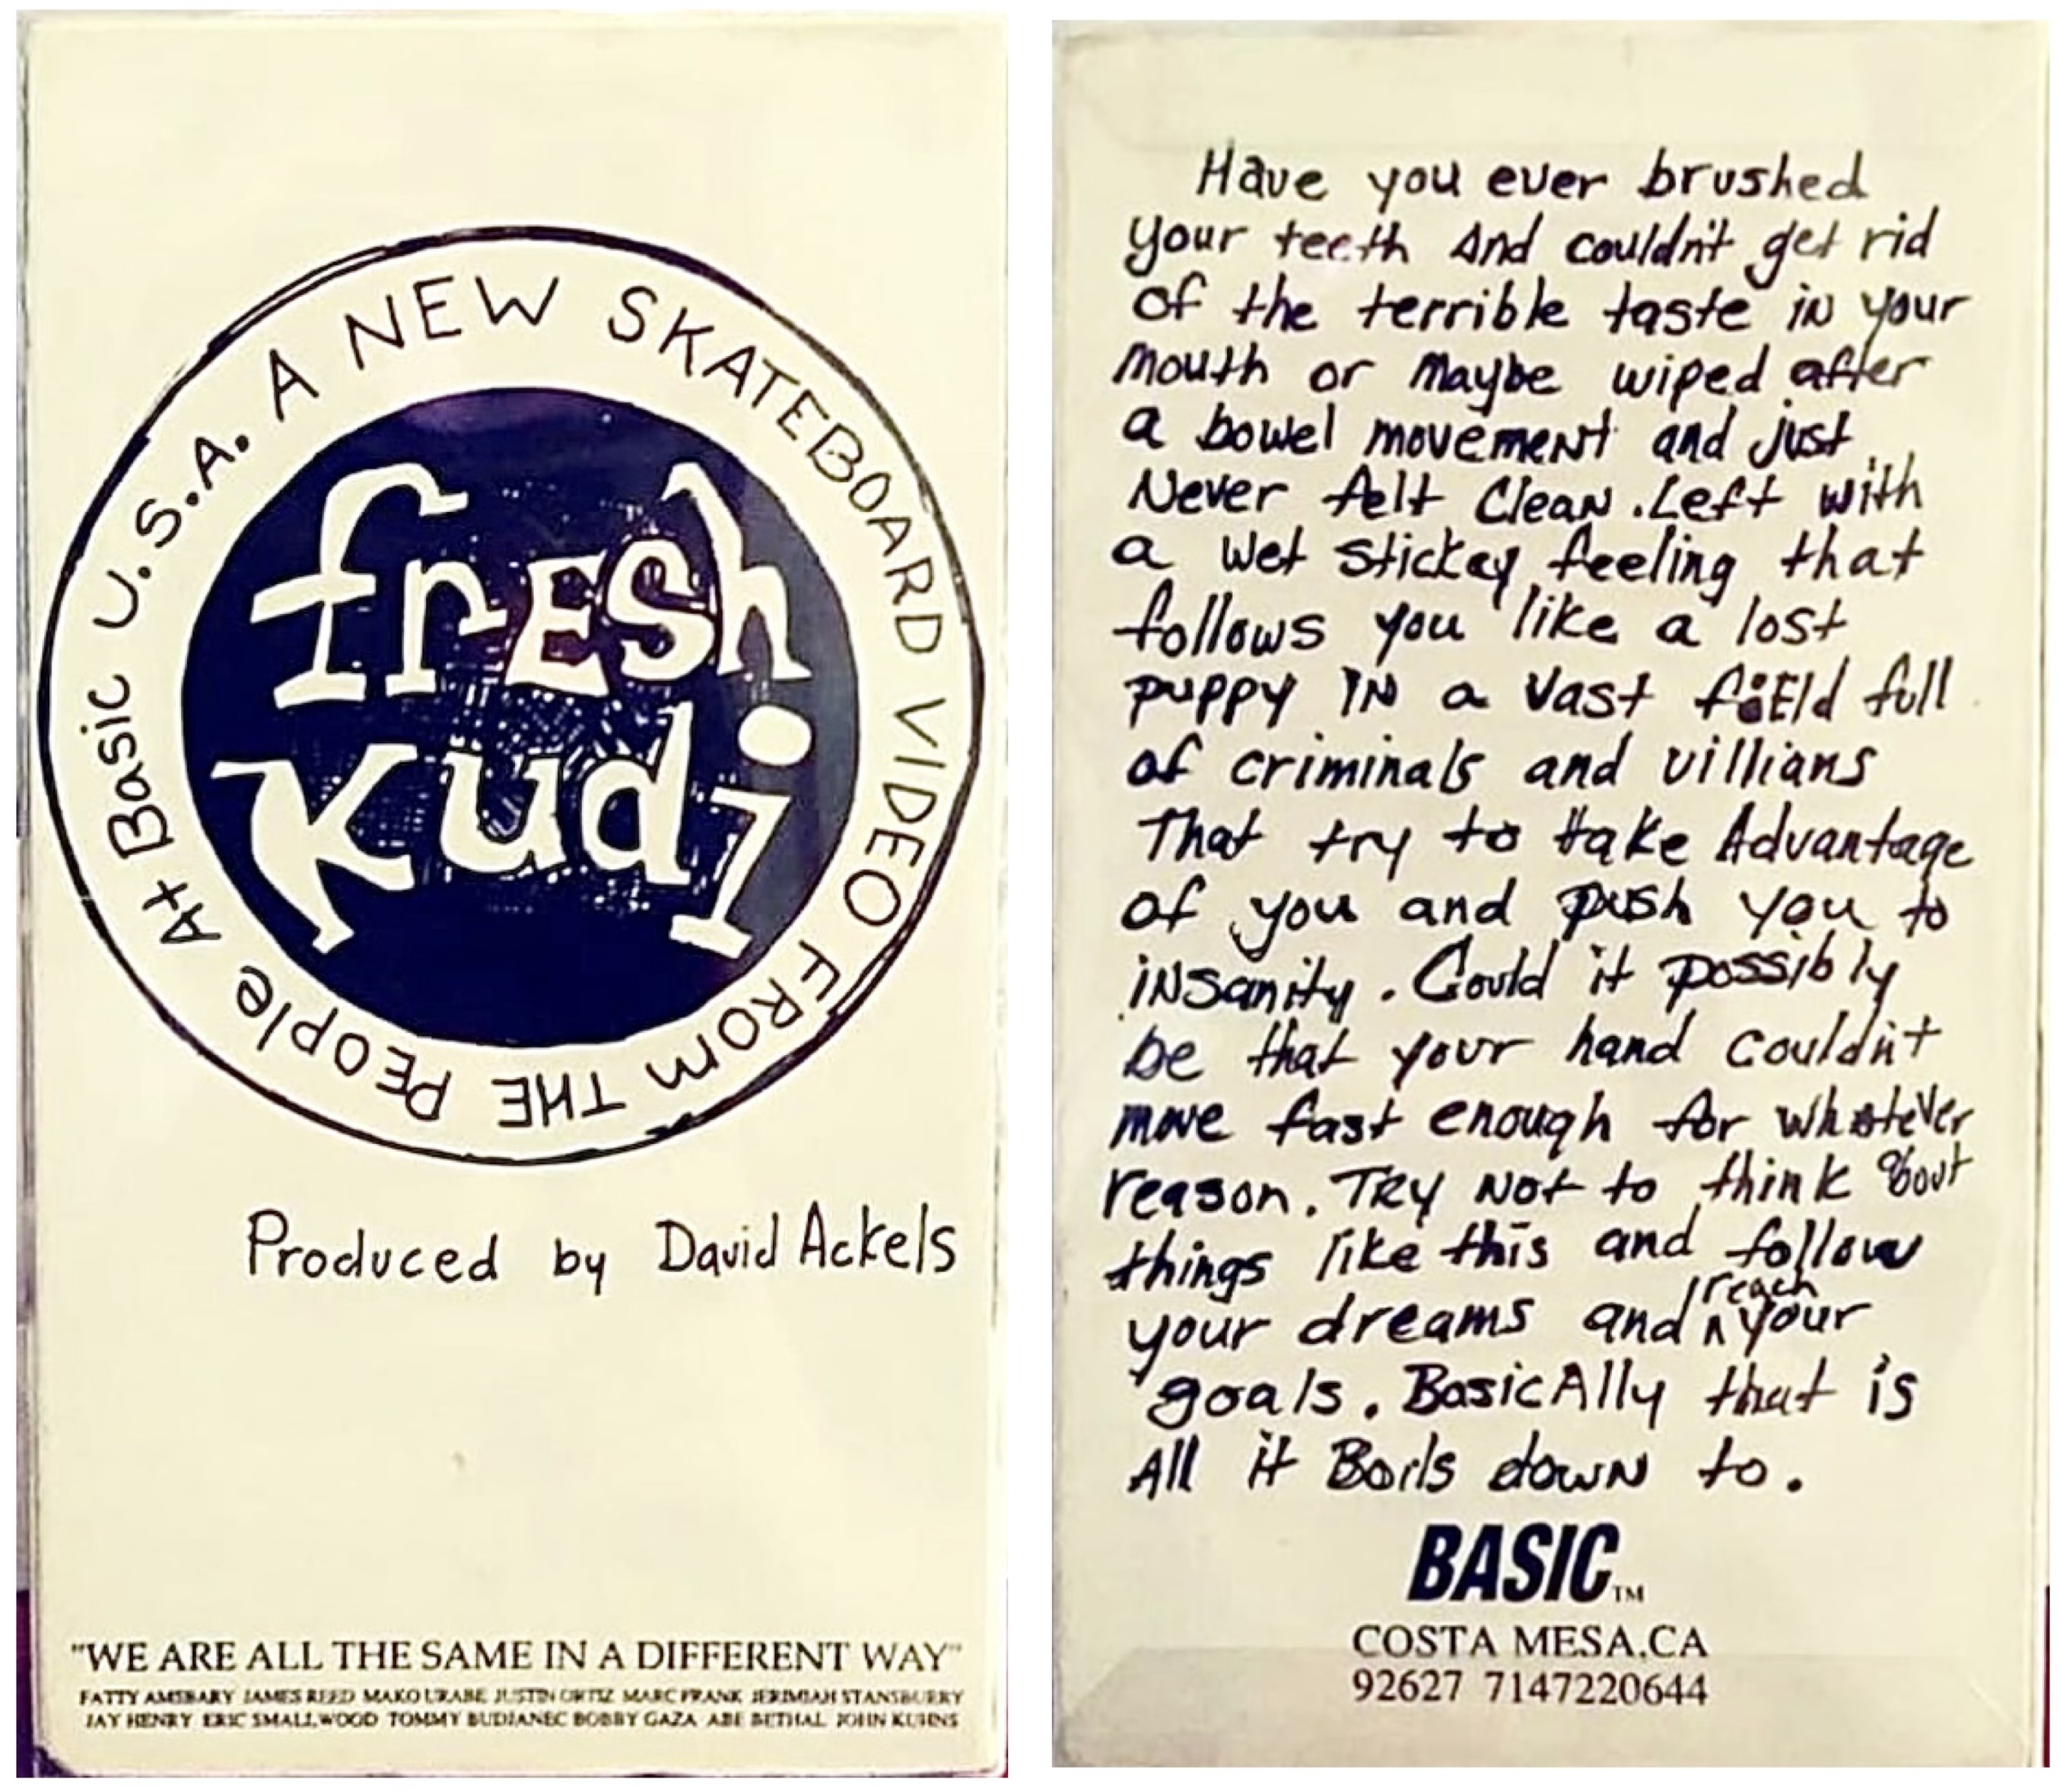 A NEW SKATEBOARD VIDEO FROM THE PEOple At Basic U.S.A.
frESh
Kudi
Produced by David Ackels
"WE ARE ALL THE SAME IN A DIFFERENT WAY"
FATTY AMSBARY JAMES REED MAKO URABE JUSTIN ORTIZ MARC FRANK JERIMIAH STANSBURRY
JAY HENRY ERIC SMALLWOOD TOMMY BUDJANEC BOBBY GAZA ABE BETHAL JOHN KUHNS
Have you ever brushed
your teeth And couldn't get rid
of the terrible taste in your
mouth or maybe wiped after
a bowel movement and just
Never felt Clean. Left with
a wet stickey feeling that
follows you like a lost
puppy IN a vast fiEld full
of criminals and villians
That try to take Advantage
of you and push you to
insanity. Could it possibly
be that your hand couldn't
move fast enough for whatever
reason. TRY Not to think about
things like this and follow
your dreams and reach your
goals. BasicAlly that is
All it Boils down to.
BASIC TM
COSTA MESA.CA
92627 7147220644